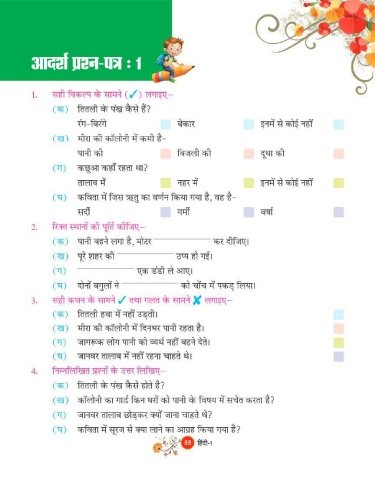 आदर्श प्रश्न-पत्र : 1
1. सही विकल्प के सामने (✓) लगाइए–
(क) तितली के पंख कैसे हैं?
रंग-बिरंगे बेकार इनमें से कोई नहीं
(ख) मीरा की कॉलोनी में कमी है–
पानी की बिजली की दूध की
(ग) कछुआ कहाँ रहता था?
तालाब में नहर में इनमें से कोई नहीं
(घ) कविता में जिस ऋतु का वर्णन किया गया है, वह है–
सर्दी गर्मी वर्षा
2. रिक्त स्थानों की पूर्ति कीजिए–
(क) पानी बहने लगा है, मोटर ____________ कर दीजिए।
(ख) पूरे शहर की ____________ ठप्प हो गई।
(ग) ____________ एक डंडी ले आए।
(घ) दोनों बगुलों ने ____________ को चोंच में पकड़ लिया।
3. सही कथन के सामने ✓ तथा गलत के सामने ✗ लगाइए–
(क) तितली हवा में नहीं उड़ती।
(ख) मीरा की कॉलोनी में दिनभर पानी रहता है।
(ग) जागरूक लोग पानी को व्यर्थ नहीं बहने देते।
(घ) जानवर तालाब में नहीं रहना चाहते थे।
4. निम्नलिखित प्रश्नों के उत्तर लिखिए–
(क) तितली के पंख कैसे होते है?
(ख) कॉलोनी का गार्ड किन घरों को पानी के विषय में सचेत करता है?
(ग) जानवर तालाब छोड़कर क्यों जाना चाहते थे?
(घ) कविता में सूरज से क्या लाने का आग्रह किया गया है?
55 हिंदी-1